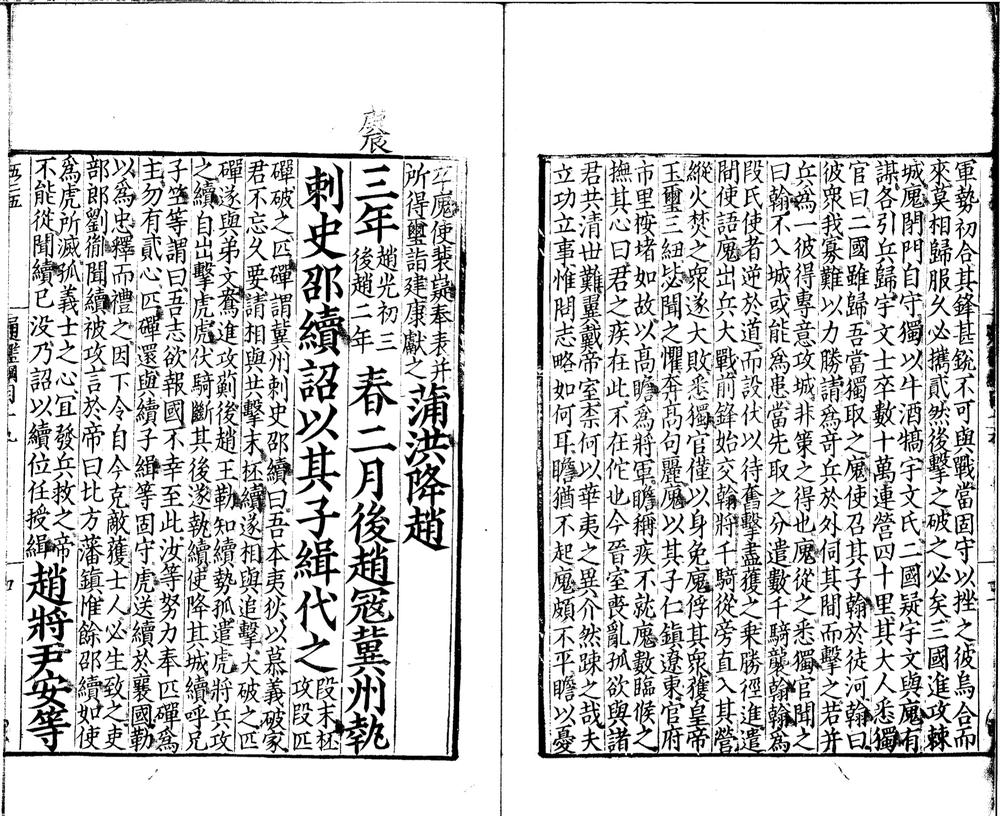 軍勢初合其鋒甚銳不可與戰當固守以挫之彼烏合而
來莫相歸服久必攜貳然後擊之破之必矣三國進攻棘
城廆閉門自守獨以牛酒犒宇文氏二國疑宇文與廆有
謀各引兵歸宇文士卒數十萬連營四十里其大人悉獨
官曰二國雖歸吾當獨取之廆使召其子翰於徒河翰曰
彼衆我寡難以力勝請爲奇兵於外伺其間而擊之若并
兵爲一彼得專意攻城非策之得也廆從之悉獨官聞之
曰翰不入城或能爲患當先取之分遣數千騎襲翰翰爲
段氏使者逆於道而設伏以待舊擊盡獲之乘勝徑進遣
間使語廆出兵大戰前鋒始交翰將千騎從旁直入其營
縱火焚之衆遂大敗悉獨官僅以身免廆俘其衆獲皇帝
玉璽三紐毖聞之懼奔高句麗廆以其子仁鎮遼東官府
市里桉堵如故以高瞻爲將軍瞻稱疾不就廆數臨候之
撫其心曰君之疾在此不在佗也今晉室喪亂孤欲與諸
君共清世難翼戴帝室柰何以華夷之異介然踈之哉夫
立功立事惟問志略如何耳瞻猶不起廆頗不平瞻以憂
卒廆使裴嶷奉表并
所得璽詣建康獻之
蒲洪降趙
庚辰
三年
趙光初三
後趙二年
春二月後趙寇冀州執
刺史邵續詔以其子緝代之
段末柸
攻段匹
磾破之匹磾謂冀州刺史邵續曰吾本夷狄以慕義破家
君不忘久要請相與共擊末柸續遂相與追擊大破之匹
磾遂與弟文鴦進攻薊後趙王勒知續勢孤遣虎將兵攻
之續自出擊虎虎伏騎斷其後遂執續使降其城續呼兄
子竺等謂曰吾志欲報國不幸至此汝等努力奉匹磾爲
主勿有貳心匹磾還與續子緝等固守虎送續於襄國勒
以爲忠釋而禮之因下令自今克敵獲士人必生致之吏
部郎劉胤聞續被攻言於帝曰北方藩鎮惟餘邵續如使
爲虎所滅孤義士之心宜發兵救之帝
不能從聞續已没乃詔以續位任授緝
趙將尹安等